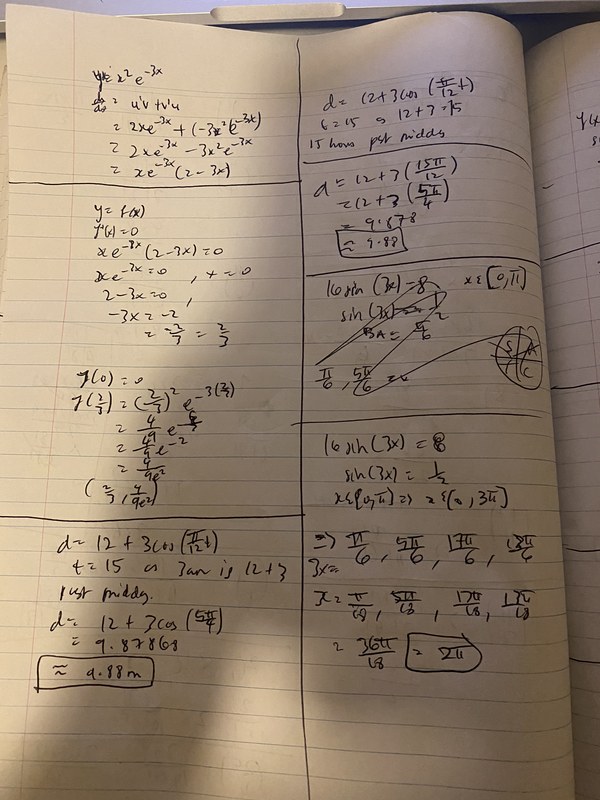 y = x² e^-3x
dy/dx = u'v + v'u
= 2xe^-3x + (-3x²(e^-3x)
= 2xe^-3x - 3x²e^-3x
= xe^-3x (2 - 3x)
y = f(x)
f'(x) = 0
xe^-3x (2-3x) = 0
xe^-3x = 0 , x = 0
2-3x = 0 ,
-3x = -2
= -2/-3 = 2/3
f(0) = 0
f(2/3) = (2/3)² e^-3(2/3)
= 4/9 e^-6/3
= 4/9 e^-2
= 4/9e²
(2/3, 4/9e²)
d = 12 + 3cos (π/12 t)
t = 15 as 3am is 12+3
past midday.
d = 12 + 3cos (5π/4)
= 9.87868
≈ 9.88m
d = 12 + 3cos (π/12 t)
t = 15 as 12 + 3 = 15
15 hours past midday
d = 12 + 3 (15π/12)
= 12 + 3 (5π/4)
= 9.878
≈ 9.88
16 sin (3x) = 8 x ∈ [0, π]
sin (3x) = 1/2
BA = π/6
S A
C
π/6 , 5π/6 = x
16 sin (3x) = 8
sin (3x) = 1/2
x ∈ [0, π] => x ∈ [0, 3π]
=> π/6 , 5π/6 , 17π/6 , 13π/6
3x =
x = π/18 , 5π/18 , 17π/18 , 13π/18
= 36π/18 = 2π